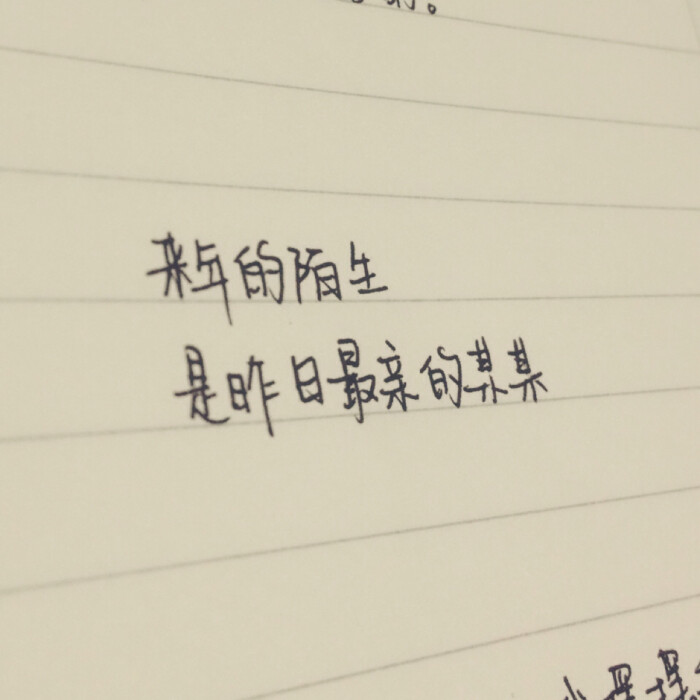 来年的陌生
是昨日最亲的某某